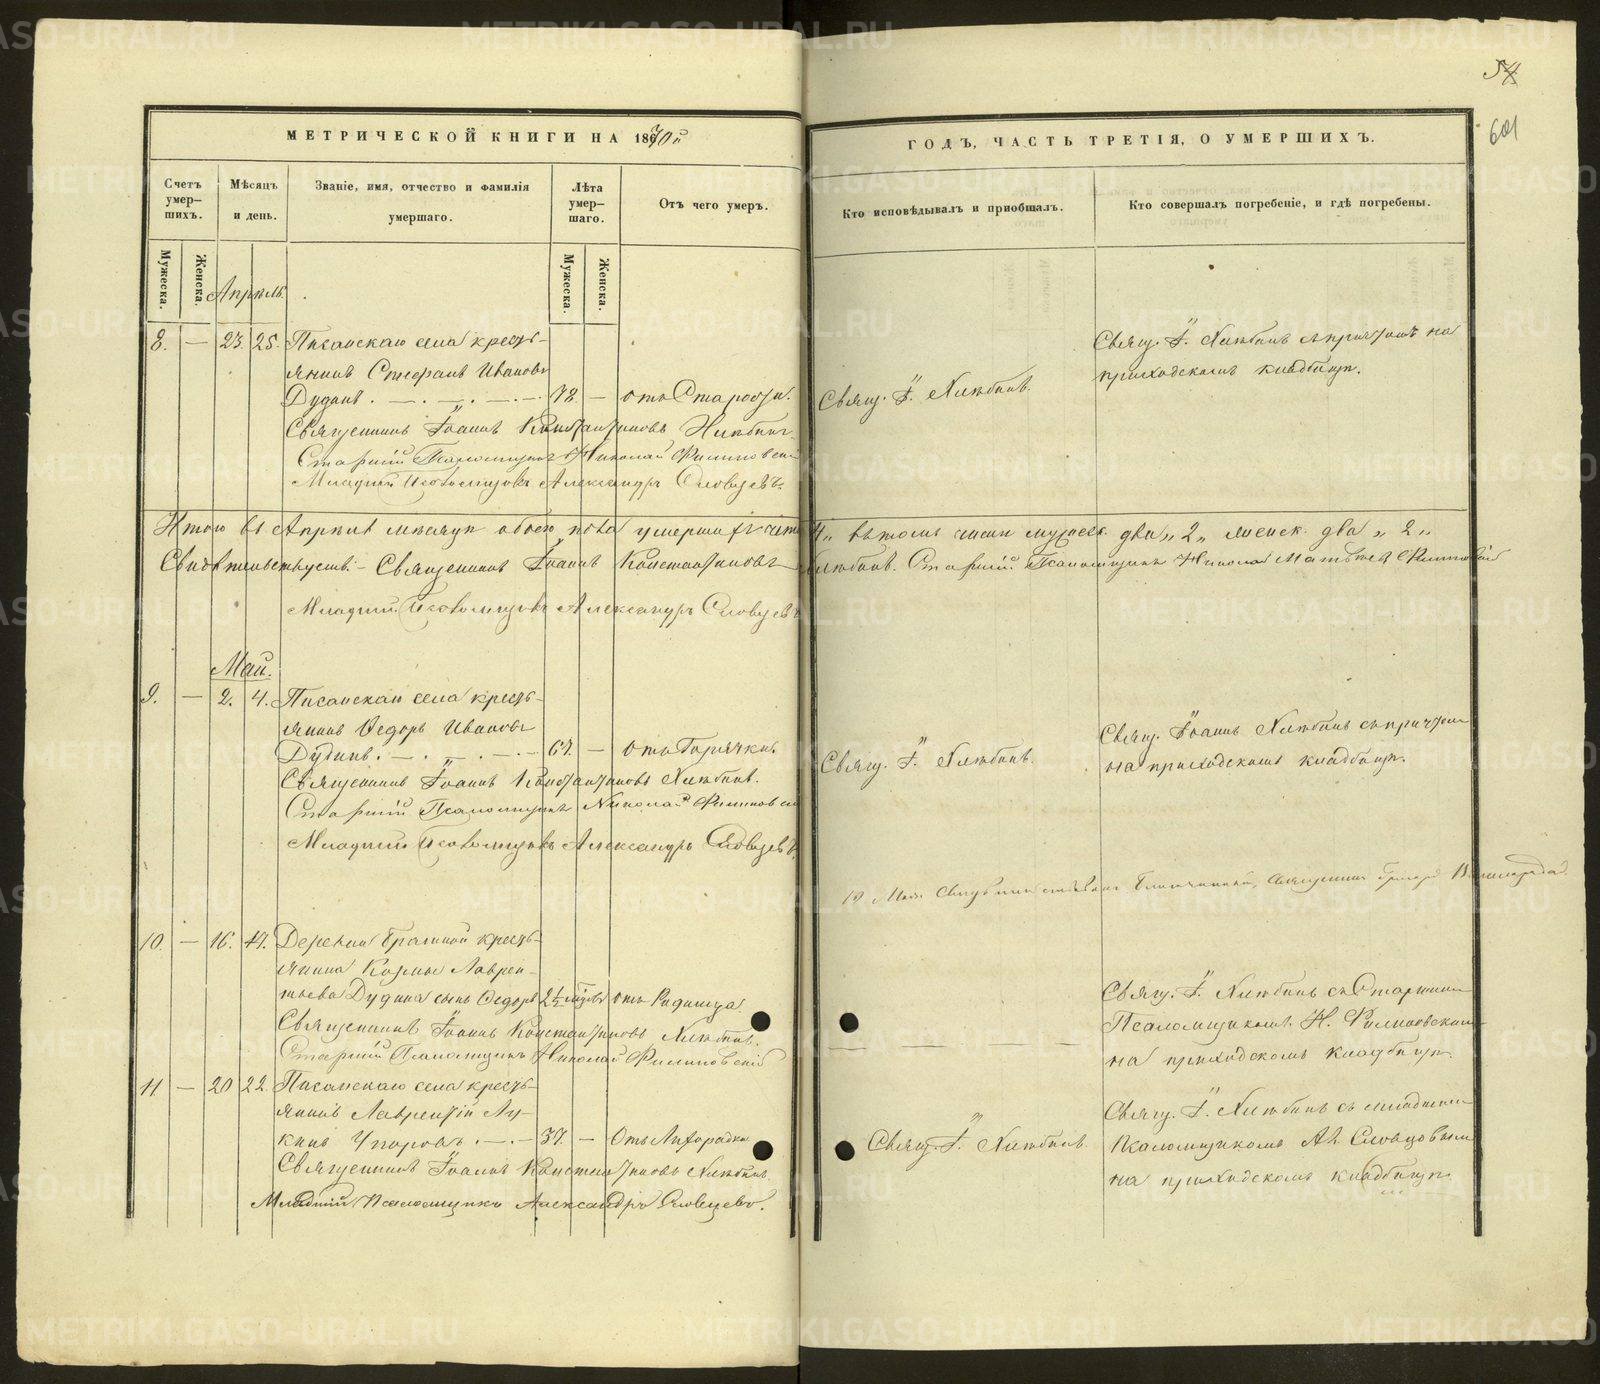 54
601
МЕТРИЧЕСКОЙ КНИГИ НА 1870й
ГОДЪ, ЧАСТЬ ТРЕТІЯ, О УМЕРШИХЪ.
Счетъ умер-шихъ.
Мѣсяцъ и день.
Званіе, имя, отчество и фамилія умершаго.
Лѣта умер-шаго.
Отъ чего умеръ.
Кто исповѣдывалъ и пріобщалъ.
Кто совершалъ погребеніе, и гдѣ погребены.
Мужеска.
Женска.
Мужеска.
Женска.
Апрѣль.
8. — 23. 25. Писанскаго села кресть-
янинъ Стефанъ Ивановъ
Дудинъ. — . — . — . — 72 — отъ Старости.
Свящ. І. Хлѣбинъ.
Свящ. І. Хлѣбинъ съ причтомъ на
приходскомъ кладбищѣ.
Священникъ Іоаннъ Константиновъ Хлѣбинъ.
Старшій Псаломщикъ Николай Филиповскій
Младшій Псаломщикъ Александръ Словцевъ.
Итого въ Апрѣлѣ мѣсяцѣ обоего пола умерши 4, въ томъ числѣ мужеск. два „2„ женск. два „2„
Свидѣтельствуемъ: Священникъ Іоаннъ Константиновъ Хлѣбинъ. Старшій Псаломщикъ Николай Матвѣевъ Филиповскій
Младшій Псаломщикъ Александръ Словцевъ
Май.
9. — 2. 4. Писанскаго села кресть-
янинъ Ѳедоръ Ивановъ
Дудинъ. — . — . — 67. — отъ Горячки.
Свящ. І. Хлѣбинъ.
Свящ. Іоаннъ Хлѣбинъ съ причтомъ
на приходскомъ кладбищѣ.
Священникъ Іоаннъ Константиновъ Хлѣбинъ.
Старшій Псаломщикъ Николай Филиповскій
Младшій Псаломщикъ Александръ Словцевъ.
Мая
10. — 16. 17. Деревни кресть-
янина Козмы Лаврен-
тьева Дудина сынъ Ѳедоръ 2½ отъ Родимца
Свящ. І. Хлѣбинъ съ Старшимъ
Псаломщикомъ Н. Филиповскимъ
на приходскомъ кладбищѣ.
Священникъ Іоаннъ Константиновъ Хлѣбинъ.
Старшій Псаломщикъ Николай Филиповскій
11. — 20 22. Писанскаго села кресть-
янинъ Лаврентій Лу-
кинъ Упоровъ. — . — 37. — Отъ Лихорадки
Свящ. І. Хлѣбинъ.
Свящ. І. Хлѣбинъ съ младшимъ
Псаломщикомъ Ал. Словцовымъ
на приходскомъ кладбищѣ
Священникъ Іоаннъ Константиновъ Хлѣбинъ.
Младшій Псаломщикъ Александръ Словцевъ.
METRIKI.GASO-URAL.RU